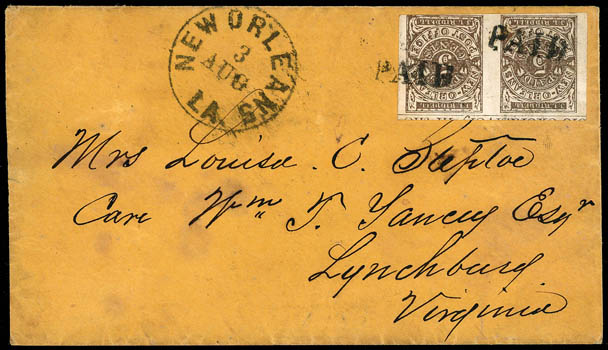 NEW ORLEANS
3
AUG
LA
PAID
PAID
Mrs Louisa. C. Steptoe
Care Wm T. Yancey Esqr
Lynchburg
Virginia